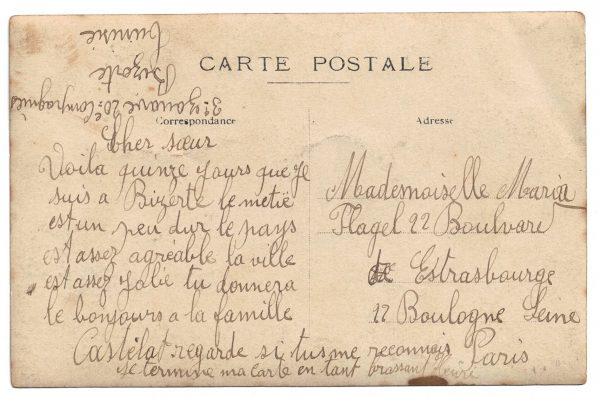 3e Zouave 20e Compagnies
Bizerte
Tunisie
CARTE POSTALE
Correspondance
Adresse
Cher sœur
Voila quinze yours que je
suis a Bizerte le metie
est un peu dur le pays
est assez agréable la ville
est assez yolie tu donnera
le bonjours a la famille
Castélat regarde si tu me reconnois
je termine ma carte en tant brassant
Mademoiselle Maria
Flagel 22 Boulvard
de Estrasbourge
22 Boulogne Seine
Paris